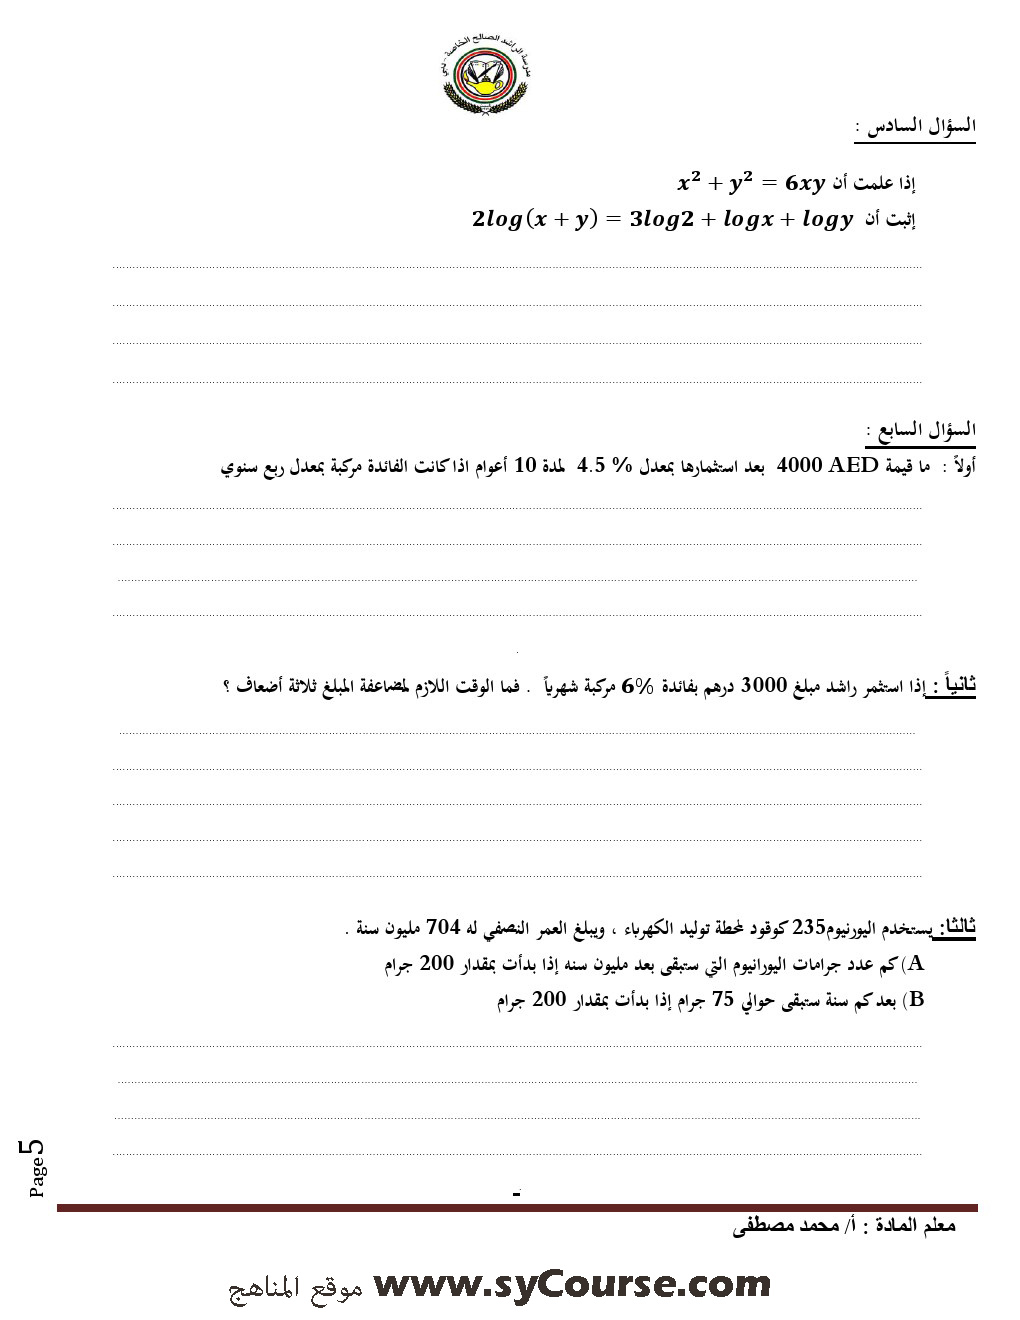 مدرسة الراشد الصالح الخاصة - دبي
السؤال السادس :
إذا علمت أن x² + y² = 6xy
إثبت أن 2log(x + y) = 3log2 + logx + logy
السؤال السابع :
أولاً : ما قيمة 4000 AED بعد استثمارها بمعدل % 4.5 لمدة 10 أعوام اذا كانت الفائدة مركبة بمعدل ربع سنوي
ثانياً : إذا استثمر راشد مبلغ 3000 درهم بفائدة 6% مركبة شهرياً . فما الوقت اللازم لمضاعفة المبلغ ثلاثة أضعاف ؟
ثالثا: يستخدم اليورنيوم235 كوقود لمحطة توليد الكهرباء ، ويبلغ العمر النصفي له 704 مليون سنة .
A) كم عدد جرامات اليورانيوم التي ستبقى بعد مليون سنه إذا بدأت بمقدار 200 جرام
B) بعد كم سنة ستبقى حوالي 75 جرام إذا بدأت بمقدار 200 جرام
Page5
معلم المادة : أ/ محمد مصطفى
موقع المناهج www.syCourse.com